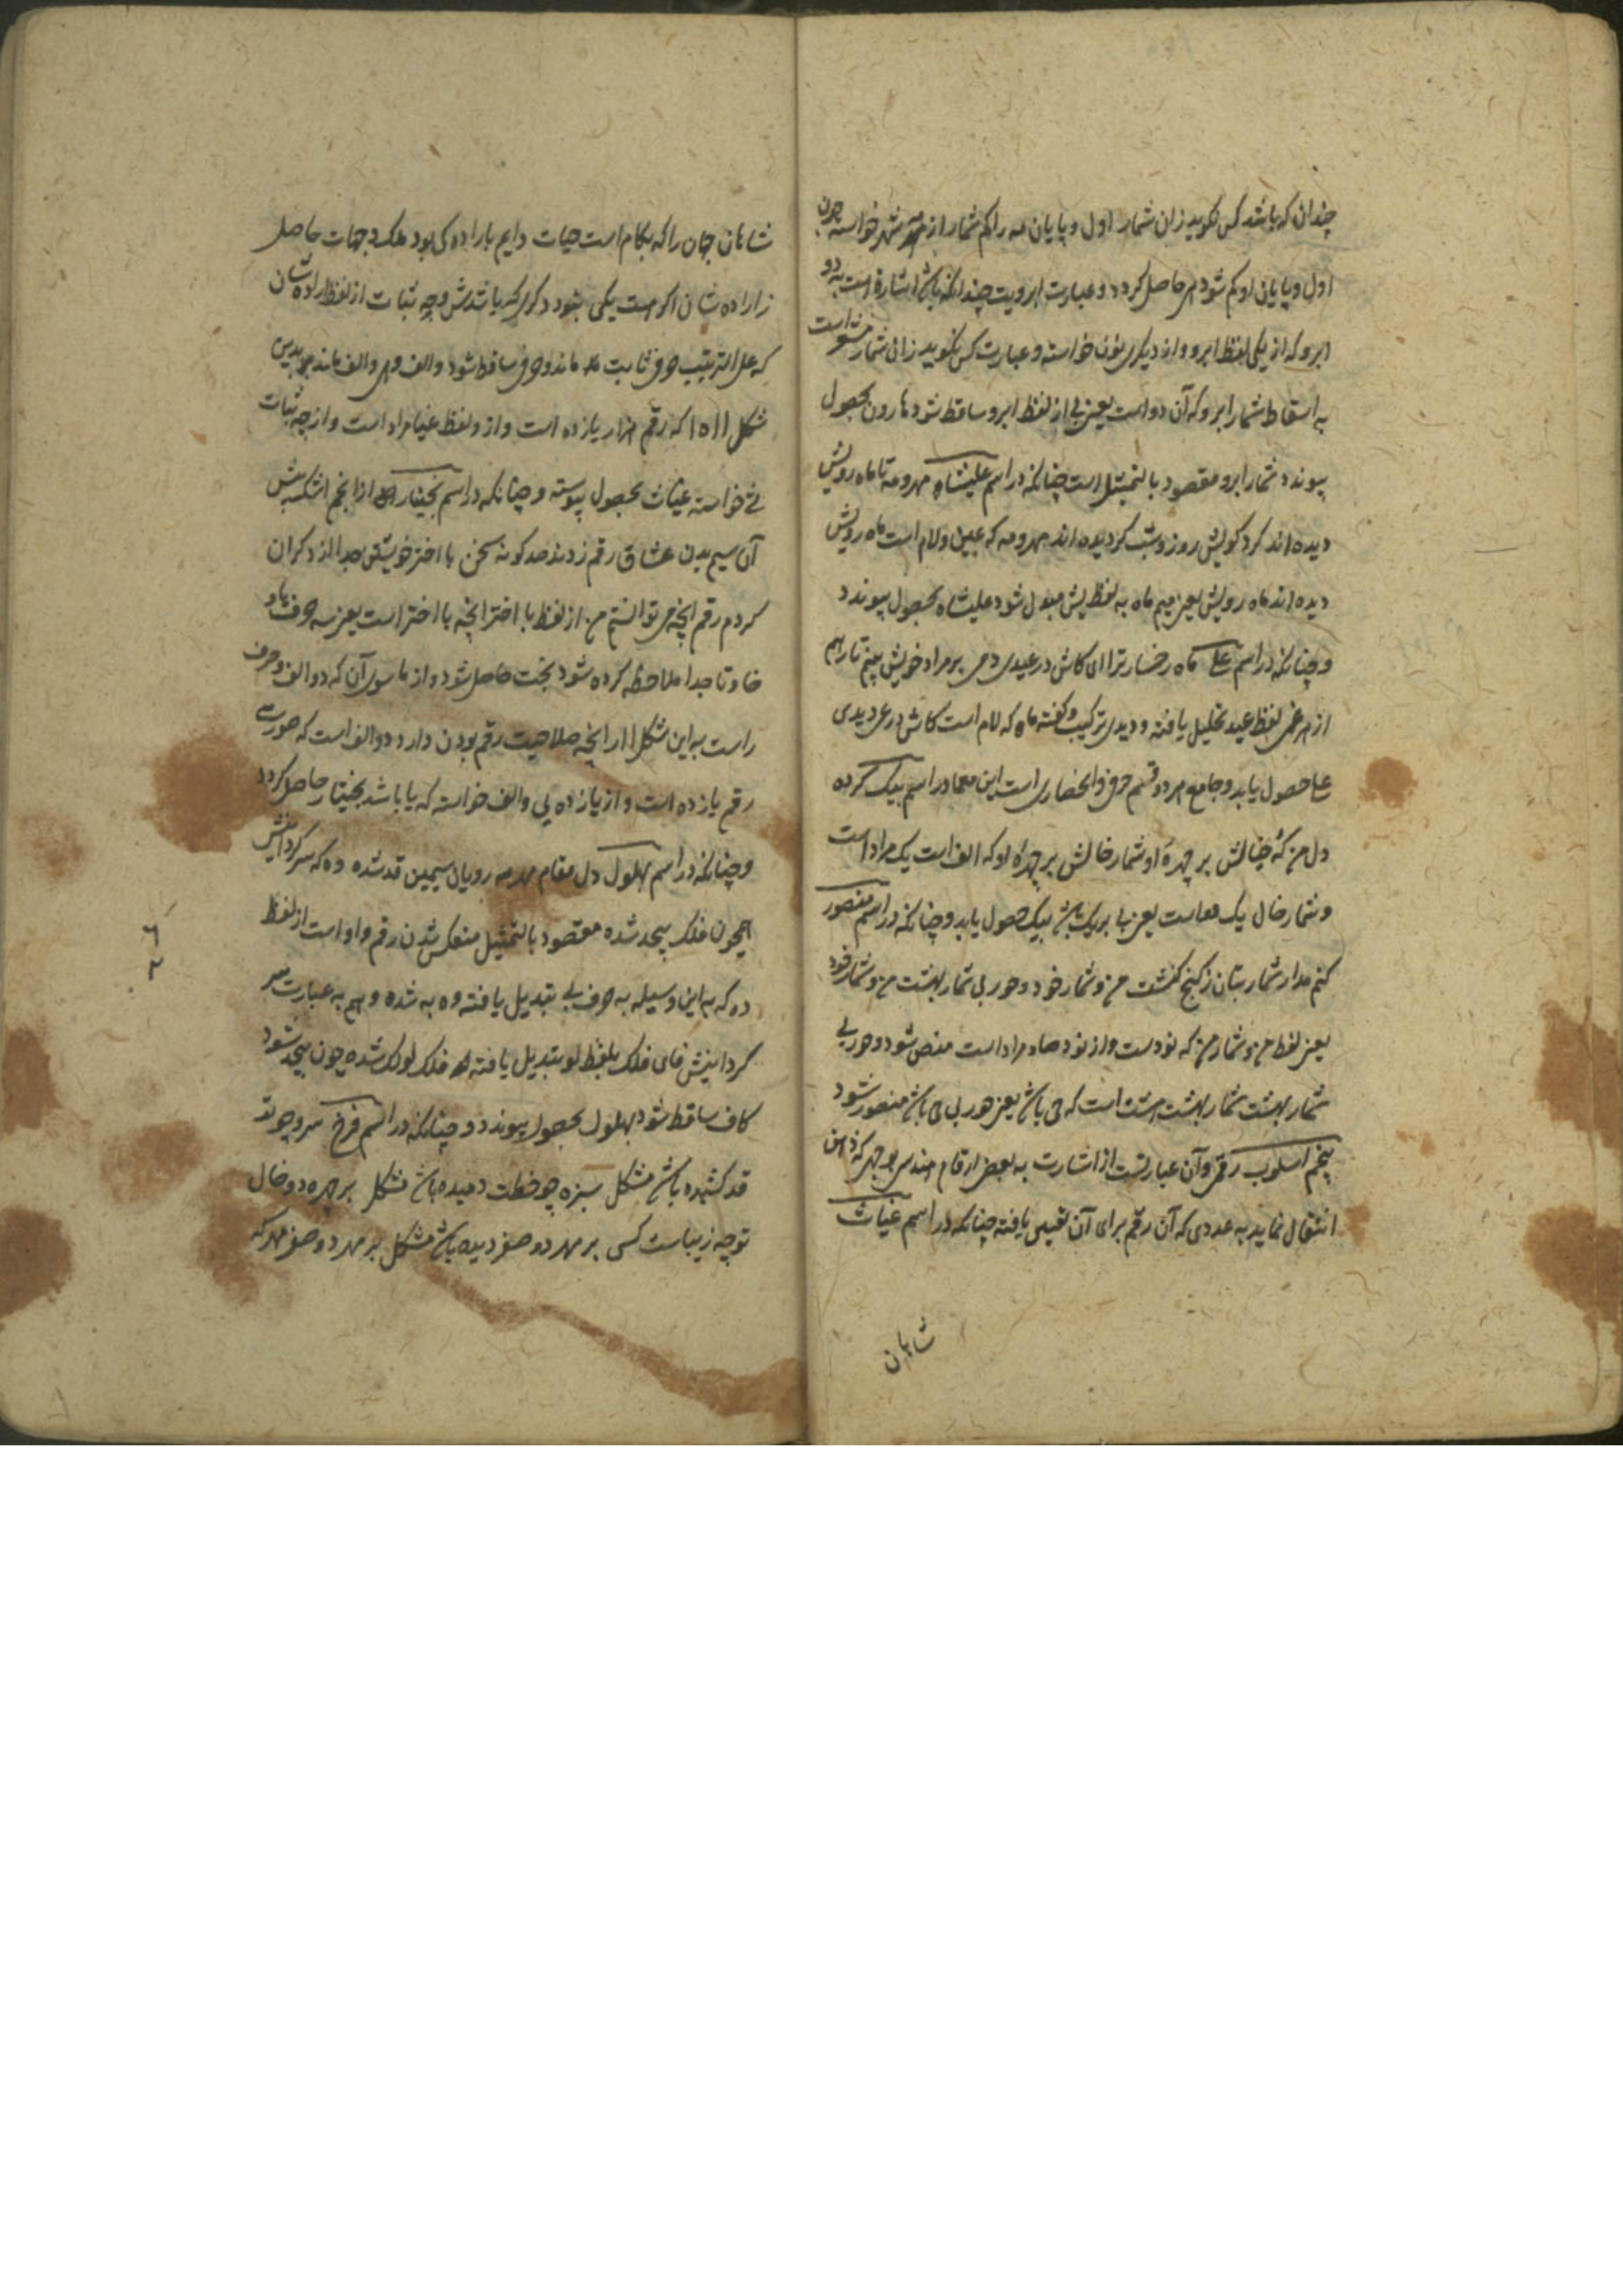 چندان که باشد کس نکوید زان شمار اول و پایان مه را کم شمار از مه شهر خواسته چون
اول و پایان او کم شود هی حاصل کردد و عبارت ابرویت چندانکه باشد اشارة است به دو
ابرو که از یکی لفظ ابرو و از دیکری نون خواسته و عبارت کس نکوید زان شمار مشعر است
به اسقاط شمار ابرو که آن دو است یعنی بی از لفظ ابرو ساقط شود هارون بحصول
پیوندد شمار ابرو مقصود بالتمثیل است چنانکه در اسم علیشاه مهر و مه تا ماه رویش
دیده اند کرد کویش روز و شب کردیده اند مهر و مه که عین و لام است ماه رویش
دیده اند ماه رویش یعنی میم ماه به لفظ یش مبدل شود علیشاه بحصول پیوندد
و چنانکه در اسم علی ماه رخسار ترا ای کاش در عیدی دمی بر مراد خویش بینم تا راهم
از هر غمی لفظ عید تحلیل یافته و دیدی ترکیب و کفته ماه که لام است کاش در ع دیدی
علی حصول یابد و جامع هر دو قسم حرفی و انحصاری است این معما در اسم بیک کرده
دل من کهٔ خیالش بر چهرهٔ او شمار خالش بر چهرهٔ او که الف است یک مراد است
و شمار خال یک دماست یعنی با بر یک باشد بیک حصول یابد و چنانکه در اسم منصور
کنم مدار شمار بتان ز کنج کنشت من و شمار خود و حور بی شمار بهشت من و شمار خود
یعنی لفظ من و شمار من که نود است و از نود صاد مراد است منص شود و حور بی
شمار بهشت شمار بهشت هشت است که حی باشد یعنی حور بی حی باشد منصور شود
پنجم اسلوب رقمی و آن عبارتست از اشارت به بعضی ارقام هندسی بوجهی که ذهن
انتقال نماید به عددی که آن رقم برای آن تعیین یافته چنانکه در اسم غیاث
شاهان
شاهان جهان را که بکام است حیات دایم باراده کی بود ملک و جهات حاصل
ز اراده شان اکر هست یکی بنود دکری که باشدش وجه ثبات از لفظ اراده شان
که علی الترتیب حرفی ثابت ماند و حرفی ساقط شود و الف و هی و الف ماند بدین
شکل ١٥١١ که رقم هزار یازده است و از و لفظ غیا مراد است و از وجه ثبات
ثی خواسته غیاث بحصول پیوسته و چنانکه در اسم بختیار از انجم اشک بیش
آن سیم بدن عشاق رقم زدند صد کونه سخن با اختر خویشتن جدا از دکران
کردم رقم آنچه می توانستم من از لفظ با اختر آنچه با اختر است یعنی سه حرف با و
خا و تا جدا ملاحظه کرده شود بخت حاصل شود و از ما سوی آن که دو الف و حرف
راست به این شکل اار آنچه صلاحیت رقم بودن دارد دو الف است که صورت
رقم یازده است و از یازده یی و الف خواسته که یا باشد بختیار حاصل کردد
و چنانکه در اسم بهلول دل مقام مهر مه رویان سیمین قد شده ده که سر کردانیش
همچون فلک بیحد شده مقصود بالتمثیل منعکس شدن رقم واو است از لفظ
ده که به این وسیله به حرف بی تبدیل یافته وه به شده و هم به عبارت سر
کردانیش فای فلک بلفظ لو تبدیل یافته فلک لولک شده چون بیحد شود
کاف ساقط شود بهلول بحصول پیوندد و چنانکه در اسم فرخ سرو چو تو
قد کشیده باشد مشکل سبزه چو خطت دمیده باشد مشکل بر چهره دو خال
تو چه زیباست کسی بر مهر دو صفر دیده باشد مشکل بر مهر دو صفر مهر که